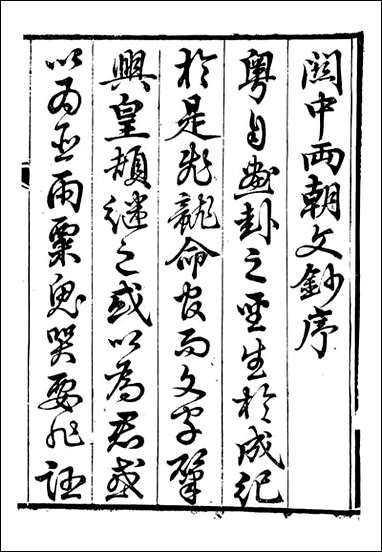 関中両朝文鈔序
粤自畫卦之聖生於成紀
於是飛龍命官而文字肇
興皇頡継之或以為君或
以為臣雨粟鬼哭要非誣